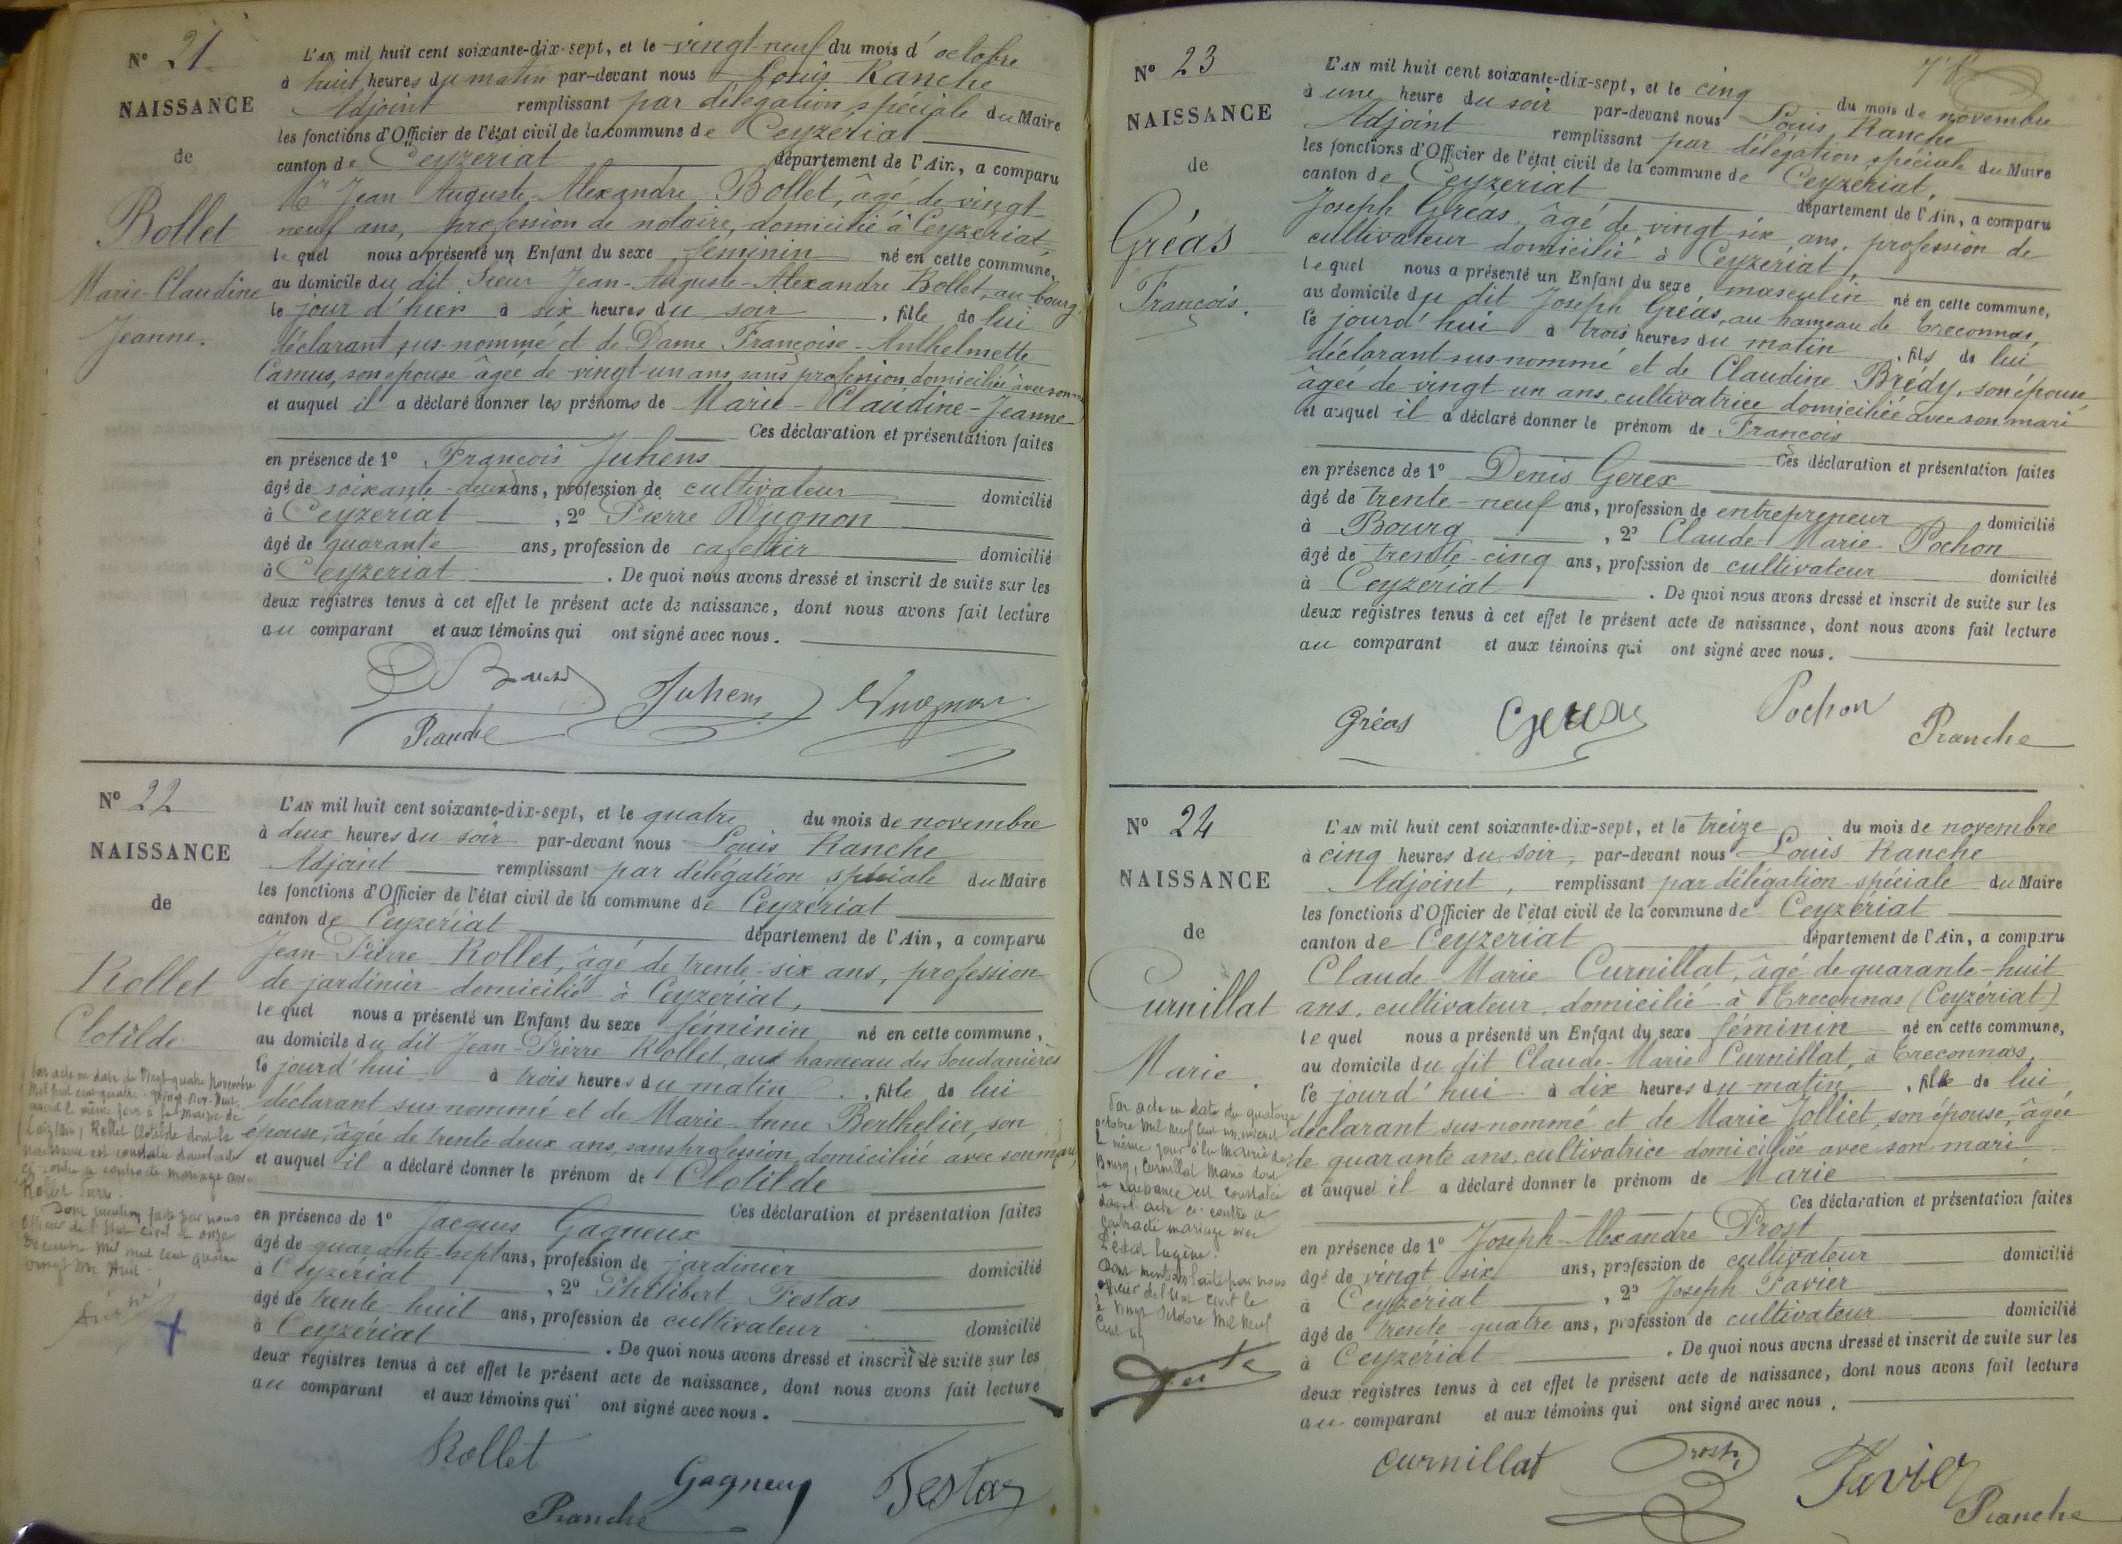 N° 21
NAISSANCE
de
Bollet
Marie-Claudine
Jeanne.
L'AN mil huit cent soixante-dix-sept, et le vingt-neuf du mois d'octobre
à huit heures du matin par-devant nous Louis Ranche
Adjoint remplissant par délégation spéciale du Maire
les fonctions d'Officier de l'état civil de la commune de Ceyzériat
canton de Ceyzériat département de l'Ain, a comparu
Mr Jean Auguste-Alexandre Bollet, âgé de vingt
neuf ans, profession de notaire, domicilié à Ceyzériat
lequel nous a présenté un Enfant du sexe féminin né en cette commune,
au domicile du dit Sieur Jean-Auguste-Alexandre Bollet, au bourg
le jour d'hier à six heures du soir, fille de lui
déclarant sus-nommé et de Dame Françoise-Anthelmette
Camus, son épouse âgée de vingt-un ans sans profession, domiciliée avec son
et auquel il a déclaré donner les prénoms de Marie-Claudine-Jeanne
Ces déclaration et présentation faites
en présence de 1° François Juhens
âgé de soixante-deux ans, profession de cultivateur domicilié
à Ceyzériat, 2° Pierre
âgé de quarante ans, profession de cafetier domicilié
à Ceyzériat. De quoi nous avons dressé et inscrit de suite sur les
deux registres tenus à cet effet le présent acte de naissance, dont nous avons fait lecture
au comparant et aux témoins qui ont signé avec nous.
Juhens
Ranche
N° 22
NAISSANCE
de
Rollet
Clotilde
Par acte en date du vingt-quatre novembre
Mil neuf cent quatre
le même jour à la mairie de
Rollet Clotilde dont la
naissance est constatée dans l'acte
ci-contre a contracté mariage avec
Rollet
Dont mention faite par nous
officier de l'état civil le onze
L'AN mil huit cent soixante-dix-sept, et le quatre du mois de novembre
à deux heures du soir par-devant nous Louis Ranche
Adjoint remplissant par délégation spéciale du Maire
les fonctions d'Officier de l'état civil de la commune de Ceyzériat
canton de Ceyzériat département de l'Ain, a comparu
Jean-Pierre Rollet, âgé de trente-six ans, profession
de jardinier domicilié à Ceyzériat,
lequel nous a présenté un Enfant du sexe féminin né en cette commune,
au domicile du dit Jean-Pierre Rollet, aux hameau des Soudanières
le jourd'hui à trois heures du matin, fille de lui
déclarant sus nommé et de Marie-Anne Berthelier, son
épouse, âgée de trente deux ans, sans profession, domiciliée avec son mari,
et auquel il a déclaré donner le prénom de Clotilde
Ces déclaration et présentation faites
en présence de 1° Jacques Gagneux
âgé de quarante-sept ans, profession de jardinier domicilié
à Ceyzériat, 2° Philibert Festas
âgé de trente-huit ans, profession de cultivateur domicilié
à Ceyzériat. De quoi nous avons dressé et inscrit de suite sur les
deux registres tenus à cet effet le présent acte de naissance, dont nous avons fait lecture
au comparant et aux témoins qui ont signé avec nous.
Rollet Gagneux Festas
Ranche
N° 23
NAISSANCE
de
Gréas
François.
L'AN mil huit cent soixante-dix-sept, et le cinq du mois de novembre
à une heure du soir par-devant nous Louis Ranche
Adjoint remplissant par délégation spéciale du Maire
les fonctions d'Officier de l'état civil de la commune de Ceyzériat,
canton de Ceyzériat département de l'Ain, a comparu
Joseph Gréas, âgé de vingt six ans, profession de
cultivateur domicilié à Ceyzériat,
lequel nous a présenté un Enfant du sexe masculin né en cette commune,
au domicile du dit Joseph Gréas, au hameau de Treconnas,
le jourd'hui à trois heures du matin, fils de lui
déclarant sus nommé et de Claudine Brédy, son épouse
âgée de vingt un ans, cultivatrice domiciliée avec son mari
et auquel il a déclaré donner le prénom de François
Ces déclaration et présentation faites
en présence de 1° Denis Gerex
âgé de trente-neuf ans, profession de entrepreneur domicilié
à Bourg, 2° Claude-Marie Pochon
âgé de trente-cinq ans, profession de cultivateur domicilié
à Ceyzériat. De quoi nous avons dressé et inscrit de suite sur les
deux registres tenus à cet effet le présent acte de naissance, dont nous avons fait lecture
au comparant et aux témoins qui ont signé avec nous.
Gréas Gerex Pochon
Ranche
N° 24
NAISSANCE
de
Curnillat
Marie.
Par acte en date du quatorze
octobre mil neuf cent un, inscrit
le même jour à la Mairie de
Bourg, Curnillat Marie dont
la naissance est constatée
dans l'acte ci-contre a
contracté mariage avec
Eugène.
Dont mention faite par nous
officier de l'état civil le
vingt octobre mil neuf
cent un
L'AN mil huit cent soixante-dix-sept, et le treize du mois de novembre
à cinq heures du soir, par-devant nous Louis Ranche
Adjoint, remplissant par délégation spéciale du Maire
les fonctions d'Officier de l'état civil de la commune de Ceyzériat
canton de Ceyzériat département de l'Ain, a comparu
Claude-Marie Curnillat, âgé de quarante-huit
ans, cultivateur, domicilié à Treconnas (Ceyzériat)
lequel nous a présenté un Enfant du sexe féminin né en cette commune,
au domicile du dit Claude-Marie Curnillat, à Treconnas,
le jourd'hui à dix heures du matin, fille de lui
déclarant sus nommé et de Marie Jolliet, son épouse, âgée
de quarante ans, cultivatrice domiciliée avec son mari
et auquel il a déclaré donner le prénom de Marie
Ces déclaration et présentation faites
en présence de 1° Joseph-Alexandre Prost
âgé de vingt six ans, profession de cultivateur domicilié
à Ceyzériat, 2° Joseph Favier
âgé de trente-quatre ans, profession de cultivateur domicilié
à Ceyzériat. De quoi nous avons dressé et inscrit de suite sur les
deux registres tenus à cet effet le présent acte de naissance, dont nous avons fait lecture
au comparant et aux témoins qui ont signé avec nous.
Curnillat Prost Favier
Ranche